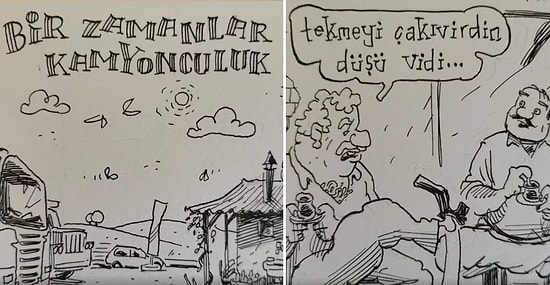 BİR ZAMANLAR
KAMYONCULUK
tekmeyi çakıvirdin
düşü vidi...